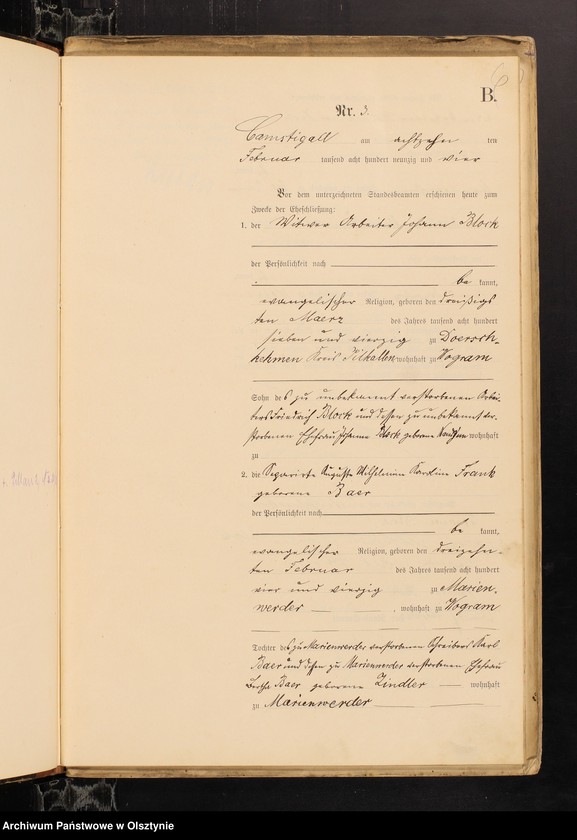 B.
Nr. 3.
Camstigall am achtzehn ten
Februar tausend acht hundert neunzig und vier
Vor dem unterzeichneten Standesbeamten erschienen heute zum
Zwecke der Eheschließung:
1. der Witwer Arbeiter Johann Block
der Persönlichkeit nach
be kannt,
evangelischer Religion, geboren den dreißigs
ten Maerz des Jahres tausend acht hundert
sieben und vierzig zu Doersch-
kehmen Kreis Pilkallen wohnhaft zu Wogram
Sohn des zu unbekannt verstorbenen Arbei-
ters Friedrich Block und dessen zu unbekannt ver-
storbenen Ehefrau Johanne Block geborene wohnhaft
zu
2. die Separirte Auguste Wilhelmine Karoline Frank
geborene Baer
der Persönlichkeit nach
be kannt,
evangelischer Religion, geboren den dreizehn-
ten Februar des Jahres tausend acht hundert
vier und vierzig zu Marien-
werder, wohnhaft zu Wogram
Tochter des zu Marienwerder verstorbenen Schreibers Karl
Baer und dessen zu Marienwerder verstorbenen Ehefrau
Bertha Baer geborene Zindler wohnhaft
zu Marienwerder
Archiwum Państwowe w Olsztynie